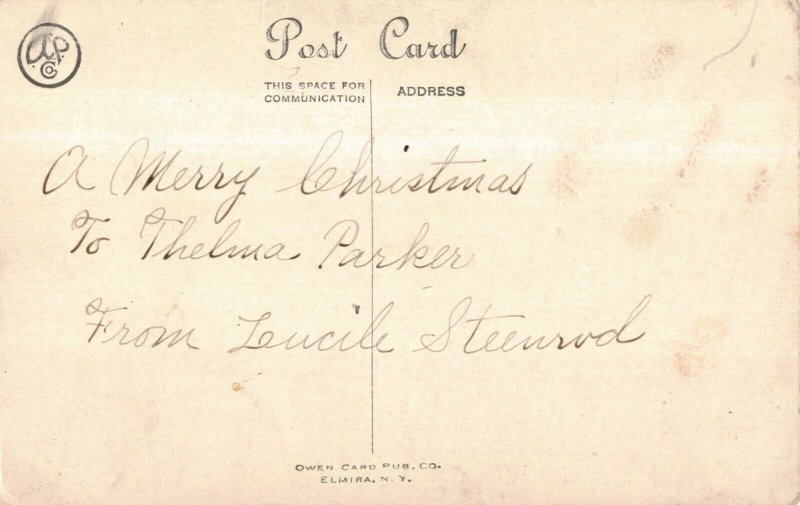 A.P. Co.
Post Card
THIS SPACE FOR
COMMUNICATION
ADDRESS
A Merry Christmas
To Thelma Parker
From Lucile Steenrod
OWEN CARD PUB. CO.
ELMIRA, N. Y.